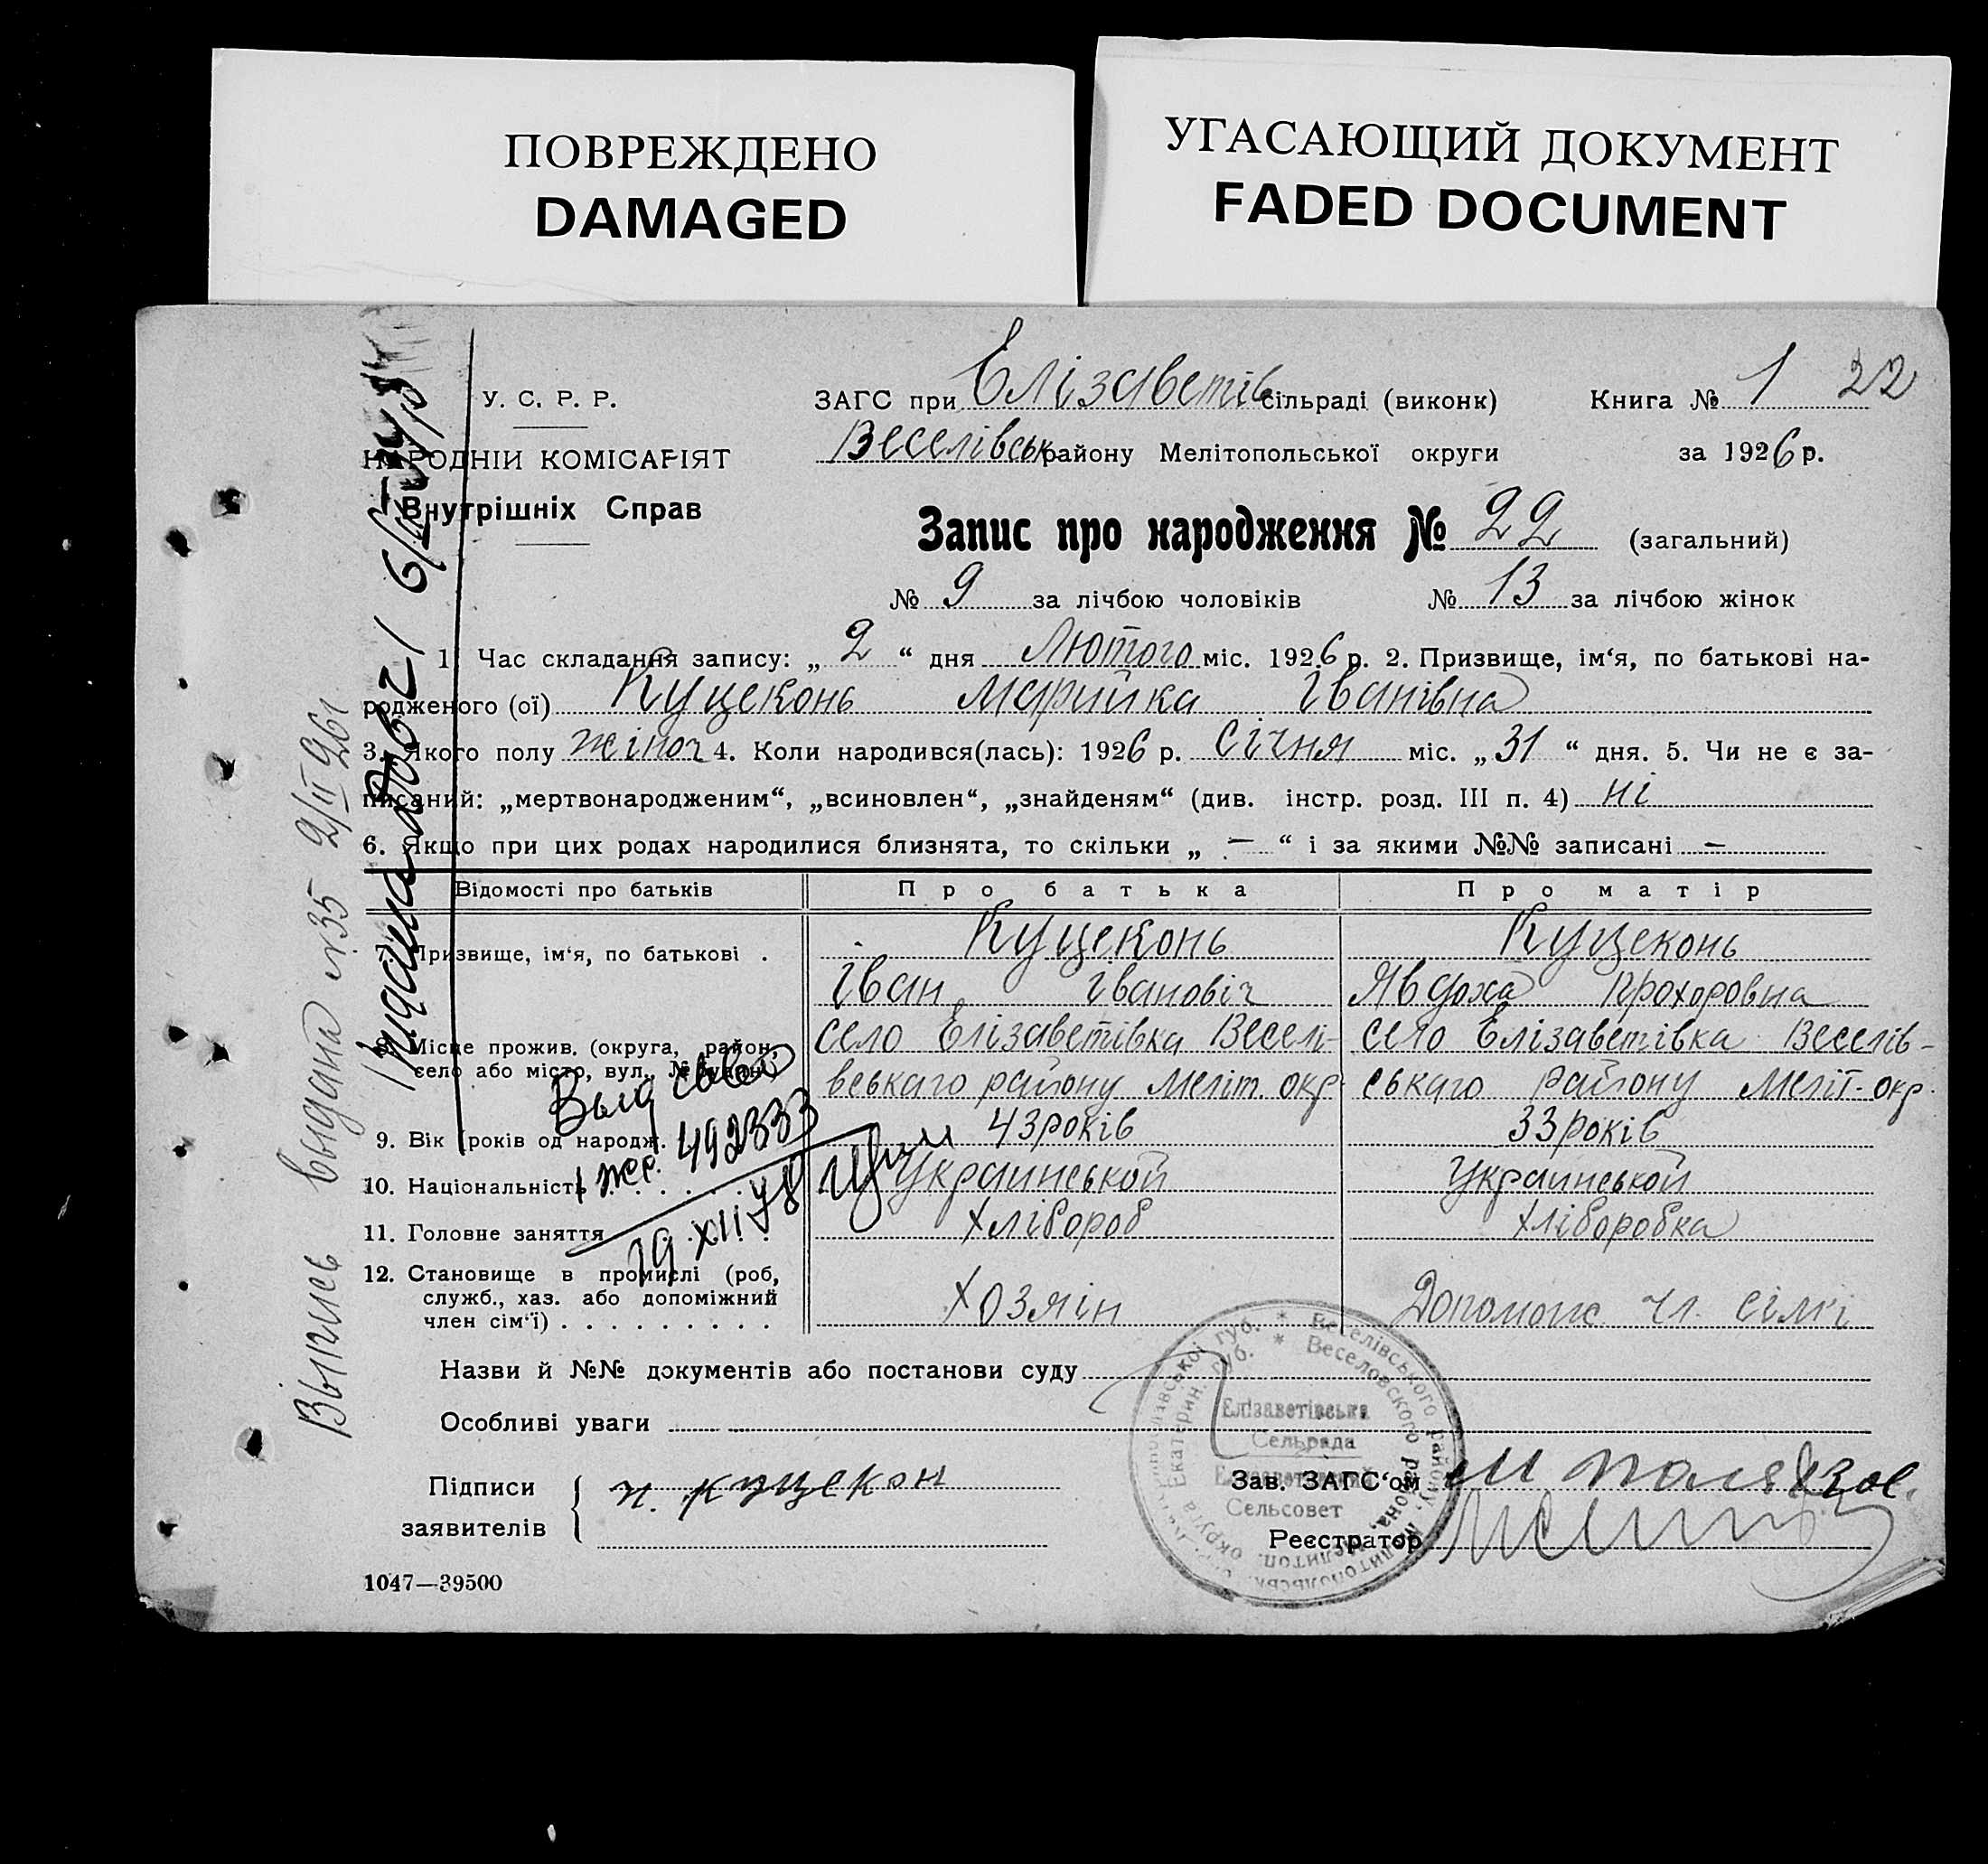 ПОВРЕЖДЕНО
DAMAGED
УГАСАЮЩИЙ ДОКУМЕНТ
FADED DOCUMENT
У. С. Р. Р.
НАРОДНІЙ КОМІСАРІЯТ
Внутрішніх Справ
ЗАГС при Елізаветів сільраді (виконк) Книга № 1 22
Веселівськ району Мелітопольської округи за 1926 р.
Запис про народження № 22 (загальний)
№ 9 за лічбою чоловіків № 13 за лічбою жінок
1. Час складання запису: „ 2 “ дня Лютого міс. 1926 р. 2. Призвище, ім‘я, по батькові на-
родженого (ої) Куцеконь Марийка Іванівна
3. Якого полу жіноч 4. Коли народився(лась): 1926 р. Січня міс. „ 31 “ дня. 5. Чи не є за-
писаний: „мертвонародженим“, „всиновлен“, „знайденям“ (див. інстр. розд. III п. 4) ні
6. Якщо при цих родах народилися близнята, то скільки „ — “ і за якими №№ записані —
Відомості про батьків Про батька Про матір
7. Призвище, ім‘я, по батькові . Куцеконь Куцеконь
Іван Івановіч Явдоха Прохоровна
8. Місце прожив. (округа, район, село Елізаветівка Веселі- село Елізаветівка Веселів-
село або місто, вул., № будин.) вськаго району Меліт. окр. ськаго району Меліт. окр.
9. Вік (років од народж. 43 років 33 років
10. Національність Украинськой Украинськой
11. Головне заняття Хлібороб Хліборобка
12. Становище в промислі (роб,
служб., хаз. або допоміжний Хозяін Допомож чл. сімі
член сім‘ї) . . . . . . . . .
Назви й №№ документів або постанови суду
Особливі уваги
Підписи
заявителів
и. куцекон
Зав. ЗАГС‘ом
Реєстратор
1047—39500
Выпись выдана №35 2/II 961
Выд
492333
19 XII 78
Елізаветівська
Сельрада
Елизаветовский
Сельсовет
Веселівського району,
Веселовского района,